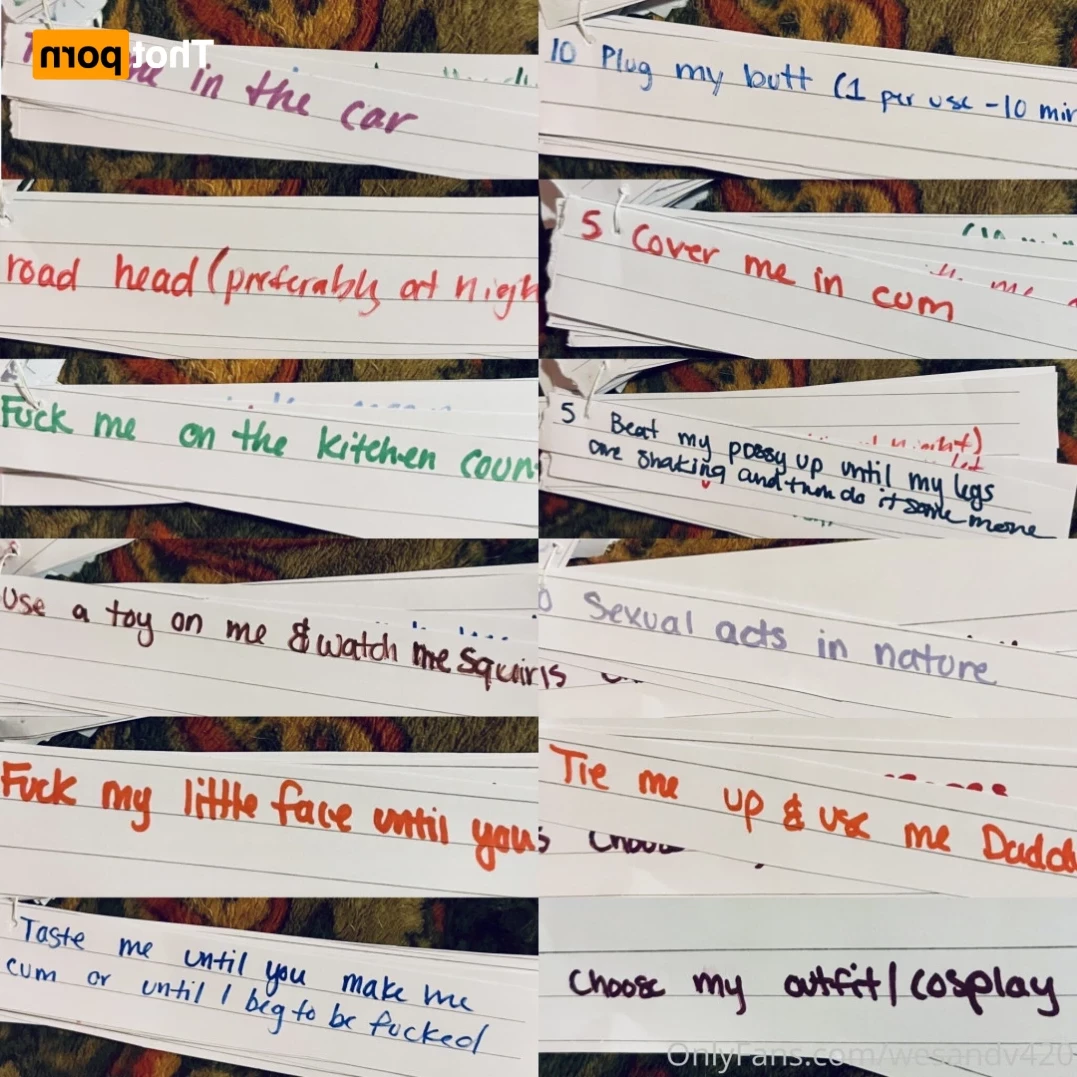 Thot porn
in the car
10 Plug my butt (1 per use - 10 min
road head (preferably at nigh
5 Cover me in cum
Fuck me on the kitchen coun
5 Beat my possy up until my legs
are shaking and then do it some more
Use a toy on me & watch me squir
Sexual acts in nature
Fuck my little face until you
Tie me up & use me Dadd
Taste me until you make me
cum or until I beg to be fucked
Choose my outfit/cosplay
OnlyFans.com/wesandv420